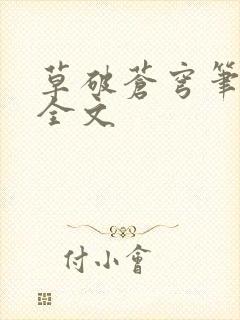 草破蒼穹筆
全文
付小會